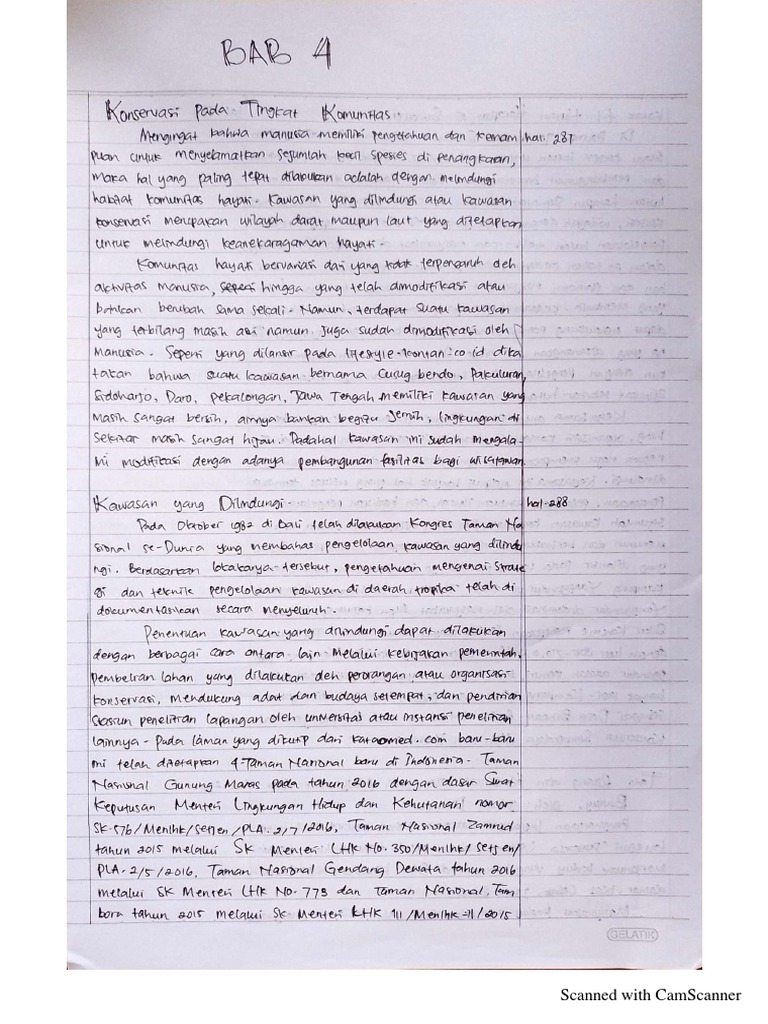 BAB 4
Konservasi pada Tingkat Komunitas.
Mengingat bahwa manusia memiliki pengetahuan dan kemam hal. 287
puan untuk menyelamatkan sejumlah kecil spesies di penangkaran,
maka hal yang paling tepat dilakukan adalah dengan melindungi
habitat komunitas hayati. Kawasan yang dilindungi atau kawasan
konservasi merupakan wilayah darat maupun laut yang ditetapkan
untuk melindungi keanekaragaman hayati.
Komunitas hayati bervariasi dari yang tidak terpengaruh oleh
aktivitas manusia, hingga yang telah dimodifikasi atau
bahkan berubah sama sekali. Namun, terdapat suatu kawasan
yang terbilang masih asri namun juga sudah dimodifikasi oleh
Manusia. Seperti yang dilansir pada lifestyle.kontan.co.id dika
takan bahwa suatu kawasan bernama Curug bendo, Pakuluran,
Sidoharjo, Doro, pekalongan, Jawa Tengah memiliki kawasan yang
masih sangat bersih, airnya bahkan begitu jernih, lingkungan di
sekitar masih sangat hijau. Padahal kawasan ini sudah mengala
mi modifikasi dengan adanya pembangunan fasilitas bagi wisatawan
Kawasan yang Dilindungi. hal. 288
Pada Oktober 1982 di Bali telah dilakukan Kongres Taman Na
sional se-Dunia yang membahas pengelolaan kawasan yang dilindu
ngi. Berdasarkan lokakarya tersebut, pengetahuan mengenai strate
gi dan teknik pengelolaan kawasan di daerah tropika telah di
documentasikan secara menyeluruh.
Penentuan kawasan yang dilindungi dapat dilakukan
dengan berbagai cara antara lain Melalui kebijakan pemerintah,
pembelian lahan yang dilakukan oleh perorangan atau organisasi
konservasi, mendukung adat dan budaya setempat, dan pendirian
stasiun penelitian lapangan oleh universitas atau instansi penelitian
lainnya. Pada laman yang dikutip dari kataomed.com baru-baru
ini telah ditetapkan 4 Taman Nasional baru di Indonesia. Taman
Nasional Gunung Maras pada tahun 2016 dengan dasar Surat
Keputusan Menteri Lingkungan Hidup dan Kehutanan nomor
SK.576/Menlhk/setjen/PLA.2/7/2016, Taman Nasional Zamrud
tahun 2015 melalui SK Menteri LHK No. 350/Menlhk/setjen/
PLA.2/5/2016, Taman Nasional Gandang Dewata tahun 2016
melalui SK Menteri LHK No. 773 dan Taman Nasional Tam
bora tahun 2015 melalui SK Menteri LHK 111/Menlhk-II/2015.
GELATIK
Scanned with CamScanner